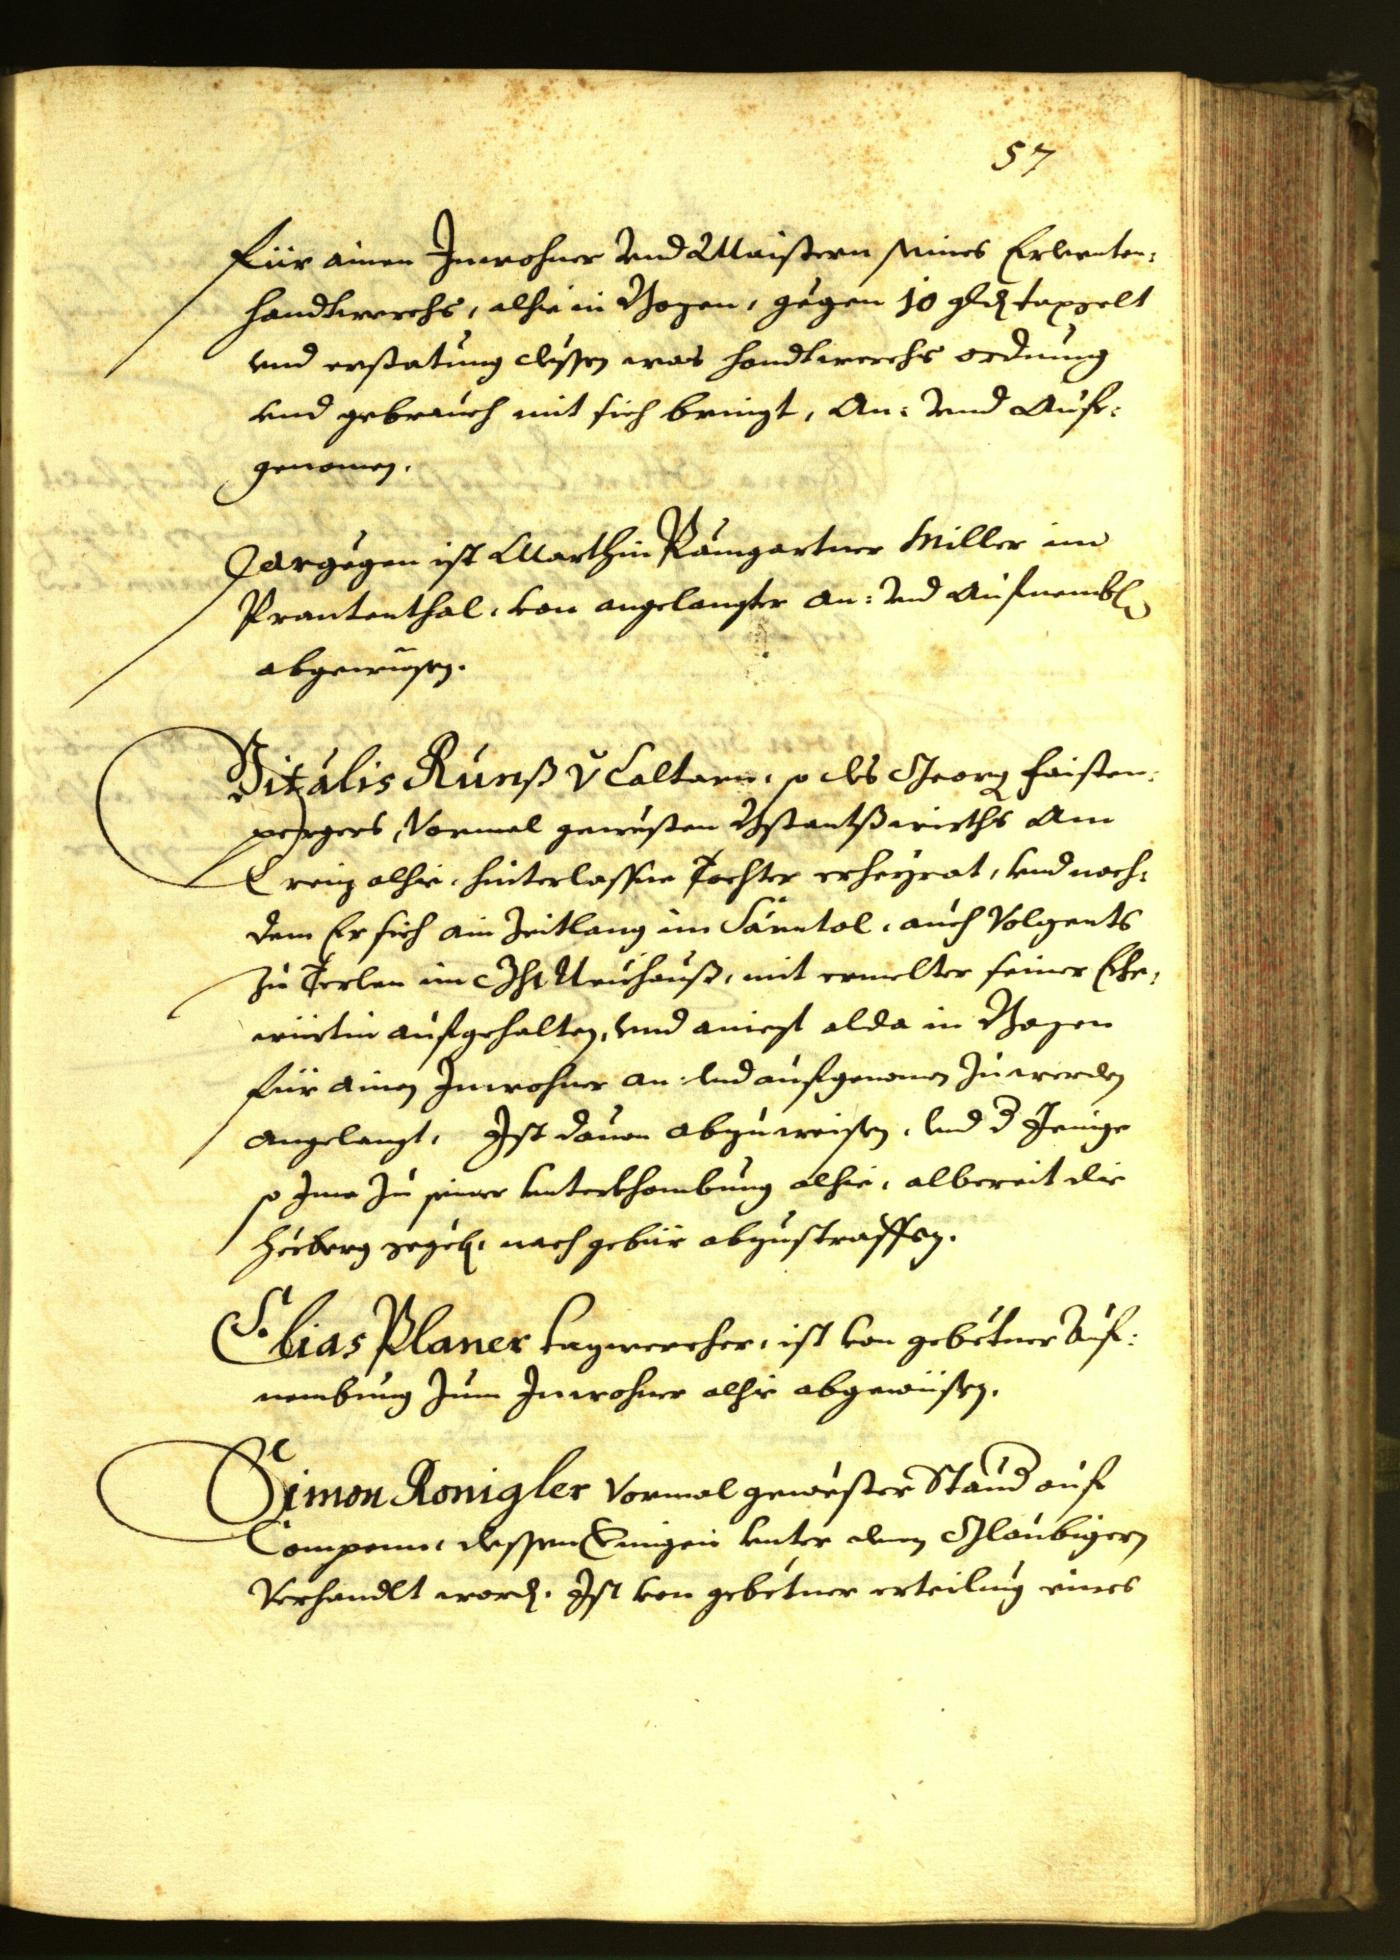 57
für ainen Inwohner vnd Maistern seines Erlernten:
handtwerchs, alhie in Bozen, gegen 10 gld taxgelt
vnd erstatung dessen was handtwerchs ordnung
vnd gebrauch mit sich bringt, An: vnd Aufe:
genomen.
Dargegen ist Marthin Paumgartner Miller im
Prantenthal, von angelangter an: vnd Aufnembung
abgewisen.
Vitalis Runß v Caltarn, so des Georg Faisten:
pergers, Vormal gewesten Bstantßwirths Am
Creiz alhie, hinterlassne Tochter erheyrat, vnd nach:
dem Er sich ain Zeitlang im Särntal, auch Volgents
zu Terlan im Neuhauß, mit ermelter seiner Ehe:
würtin aufgehalten, vnd aniezt alda in Bozen
für ainen Inwohner an: vnd aufgenomen zu werden
angelangt, Ist dauon abzuweisen, vnd d Jenige
so Ime zu seiner vnterkhombung alhie, albereit die
herberg gegeben, nach gebür abzustraffen.
Elias Planer tagwercher, ist von gebetner Auf:
nembung zum Inwohner alhie abgewisen.
Simon Ronigler Vormal gewester Staud auf
Compenn, dessen vnter den Glaubigern
Verhandlt worden. Ist von gebetner erteilung eines